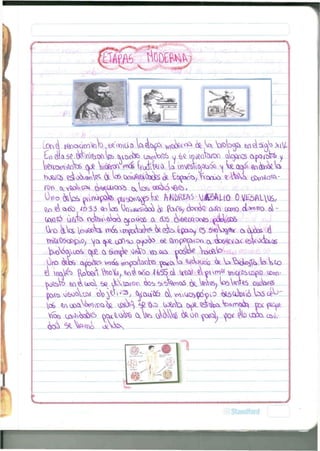 ETAPAS MODERNA
Con el renacimiento, se inicia la etapa moderna de la biología en el siglo XIV.
En ella se definieron los grandes y se inventaron algunos aparatos y
herramientas que hicieron más fructífera la investigación y fue aquí en donde la
nuevos estudiantes de las universidades de España, Francia e Italia comenza-
ron a realizar disecciones a los cadáveres.
Uno de los principales personajes fue ANDREAS VESALIO O VESALIUS,
en el año 1533 en la Universidad de París, donde aún como alumno al-
canzó cierta notoriedad gracias a sus disecciones públicas
Uno de los inventos más importantes de esta época, es sin lugar a dudas el
microscopio, ya que con su ayuda se empezaron a observar estructuras
biológicas que a simple vista no era posible hacerlo.
Uno de los aportes más importantes para la evolución de la Biología la hizo
el inglés Robert Hooke, en el año 1655 al crear el primer microscopio com-
puesto en el cual se utilizaron dos sistemas de lentes, los lentes oculares
para visualizar objetos, gracias al microscopio descubrió las célu-
las en una lámina de corcho se dio cuenta que estaba formada por peque-
ñas cavidades parecidas a las celdillas de un panal, por ello cada cavi-
dad se llamó célula.
Standford